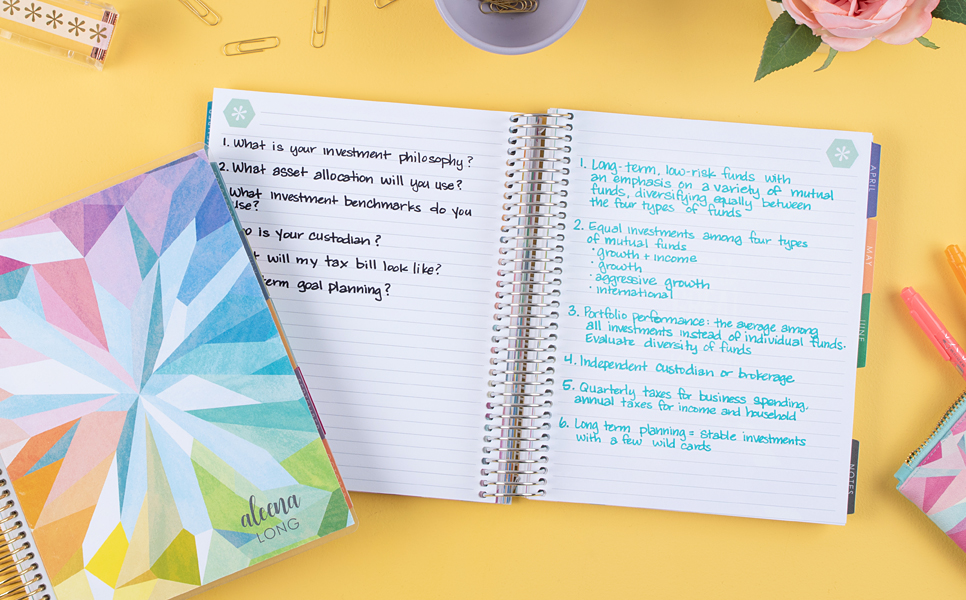 1. What is your investment philosophy?
2. What asset allocation will you use?
What investment benchmarks do you
use?
is your custodian?
will my tax bill look like?
term goal planning?
1. Long-term, low-risk funds with
an emphasis on a variety of mutual
funds, diversifying equally between
the four types of funds
2. Equal investments among four types
of mutual funds
• growth + income
• growth
• aggressive growth
• international
3. Portfolio performance: the average among
all investments instead of individual funds.
Evaluate diversity of funds
4. Independent custodian or brokerage
5. Quarterly taxes for business spending,
annual taxes for income and household
6. Long term planning = stable investments
with a few wild cards
APRIL
MAY
JUNE
NOTES
aleena
LONG